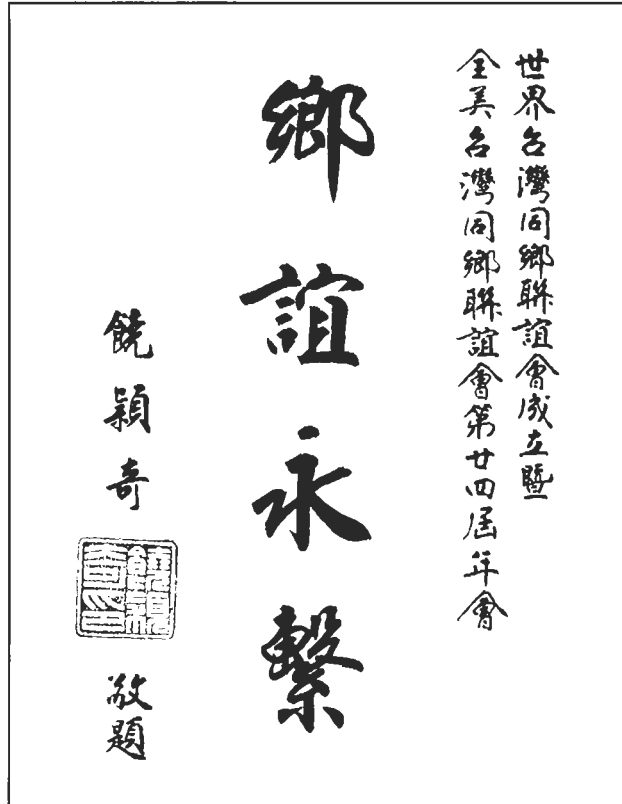 世界台灣同鄉聯誼會成立暨
全美台灣同鄉聯誼會第廿四屆年會
鄉誼永繫
饒穎奇
饒穎奇印
敬題